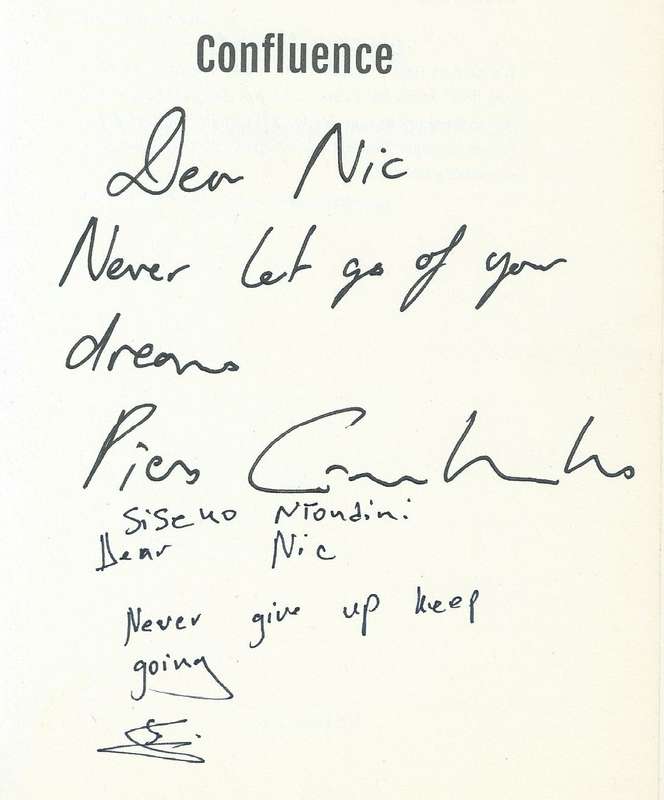 Confluence
Dear Nic
Never let go of your
dreams
Piers Cruickshanks
Siseko Ntondini
Dear Nic
Never give up keep
going